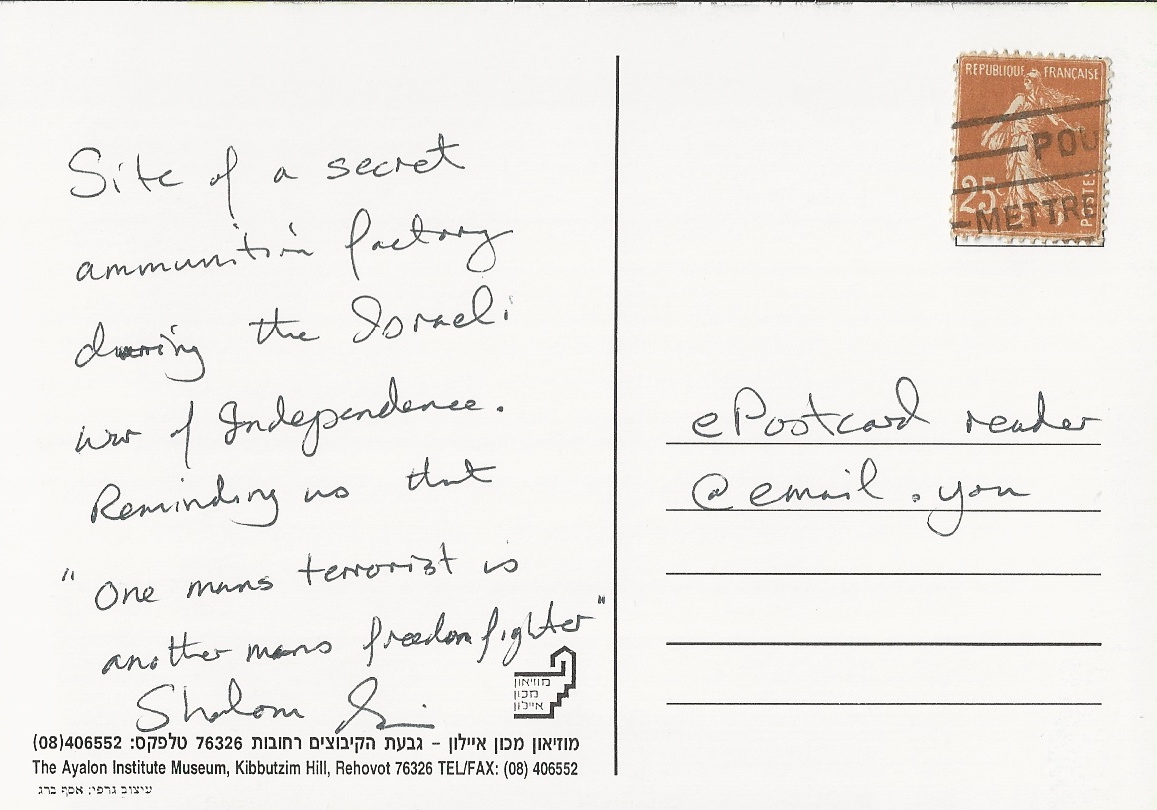 Site of a secret
ammunition factory
during the Israeli
war of Independence.
Reminding us that
"One mans terrorist is
another mans freedom fighter"
Shalom
מוזיאון
מכון
איילון
מוזיאון מכון איילון - גבעת הקיבוצים רחובות 76326 טלפקס: 406552(08)
The Ayalon Institute Museum, Kibbutzim Hill, Rehovot 76326 TEL/FAX: (08) 406552
עיצוב גרפי: אסף ברג
REPUBLIQUE FRANÇAISE
POU
25c
METTRE
POSTES
ePostcard reader
@email.you